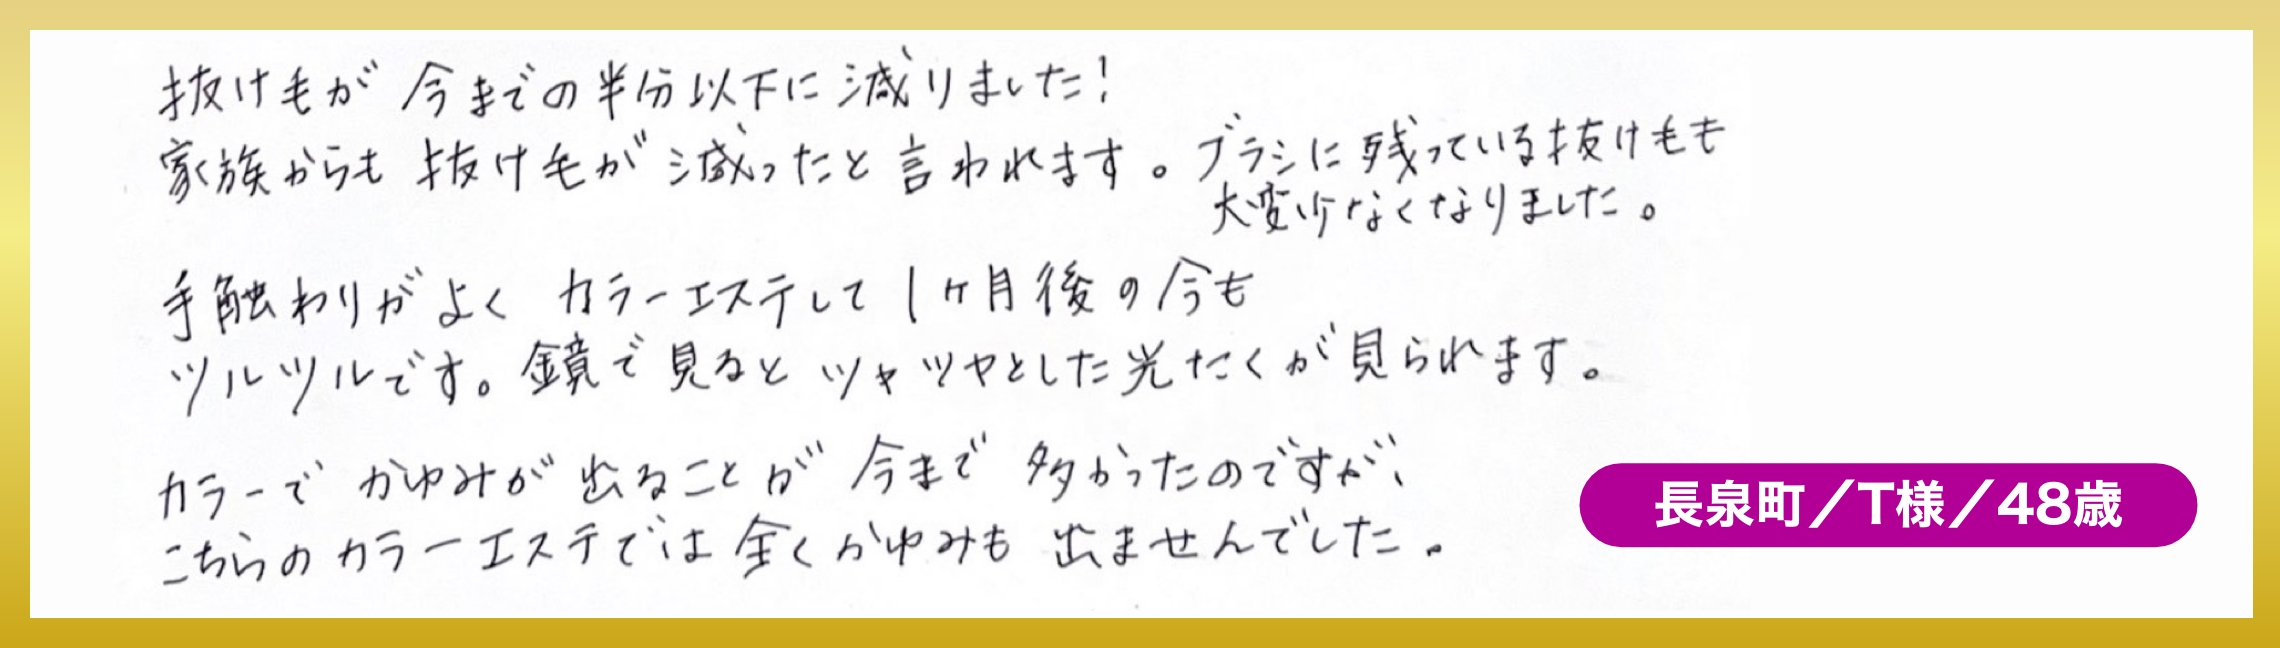 抜け毛が 今までの半分以下に減りました!
家族からも 抜け毛が減ったと言われます。ブラシに残っている抜け毛も
大変少なくなりました。
手触わりがよく カラーエステして1ヶ月後の今も
ツルツルです。鏡で見ると ツャツヤとした光たくが見られます。
カラーで かゆみが出ることが 今まで 多かったのですが、
こちらのカラーエステでは全くかゆみも 出ませんでした。
長泉町/T様/48歳